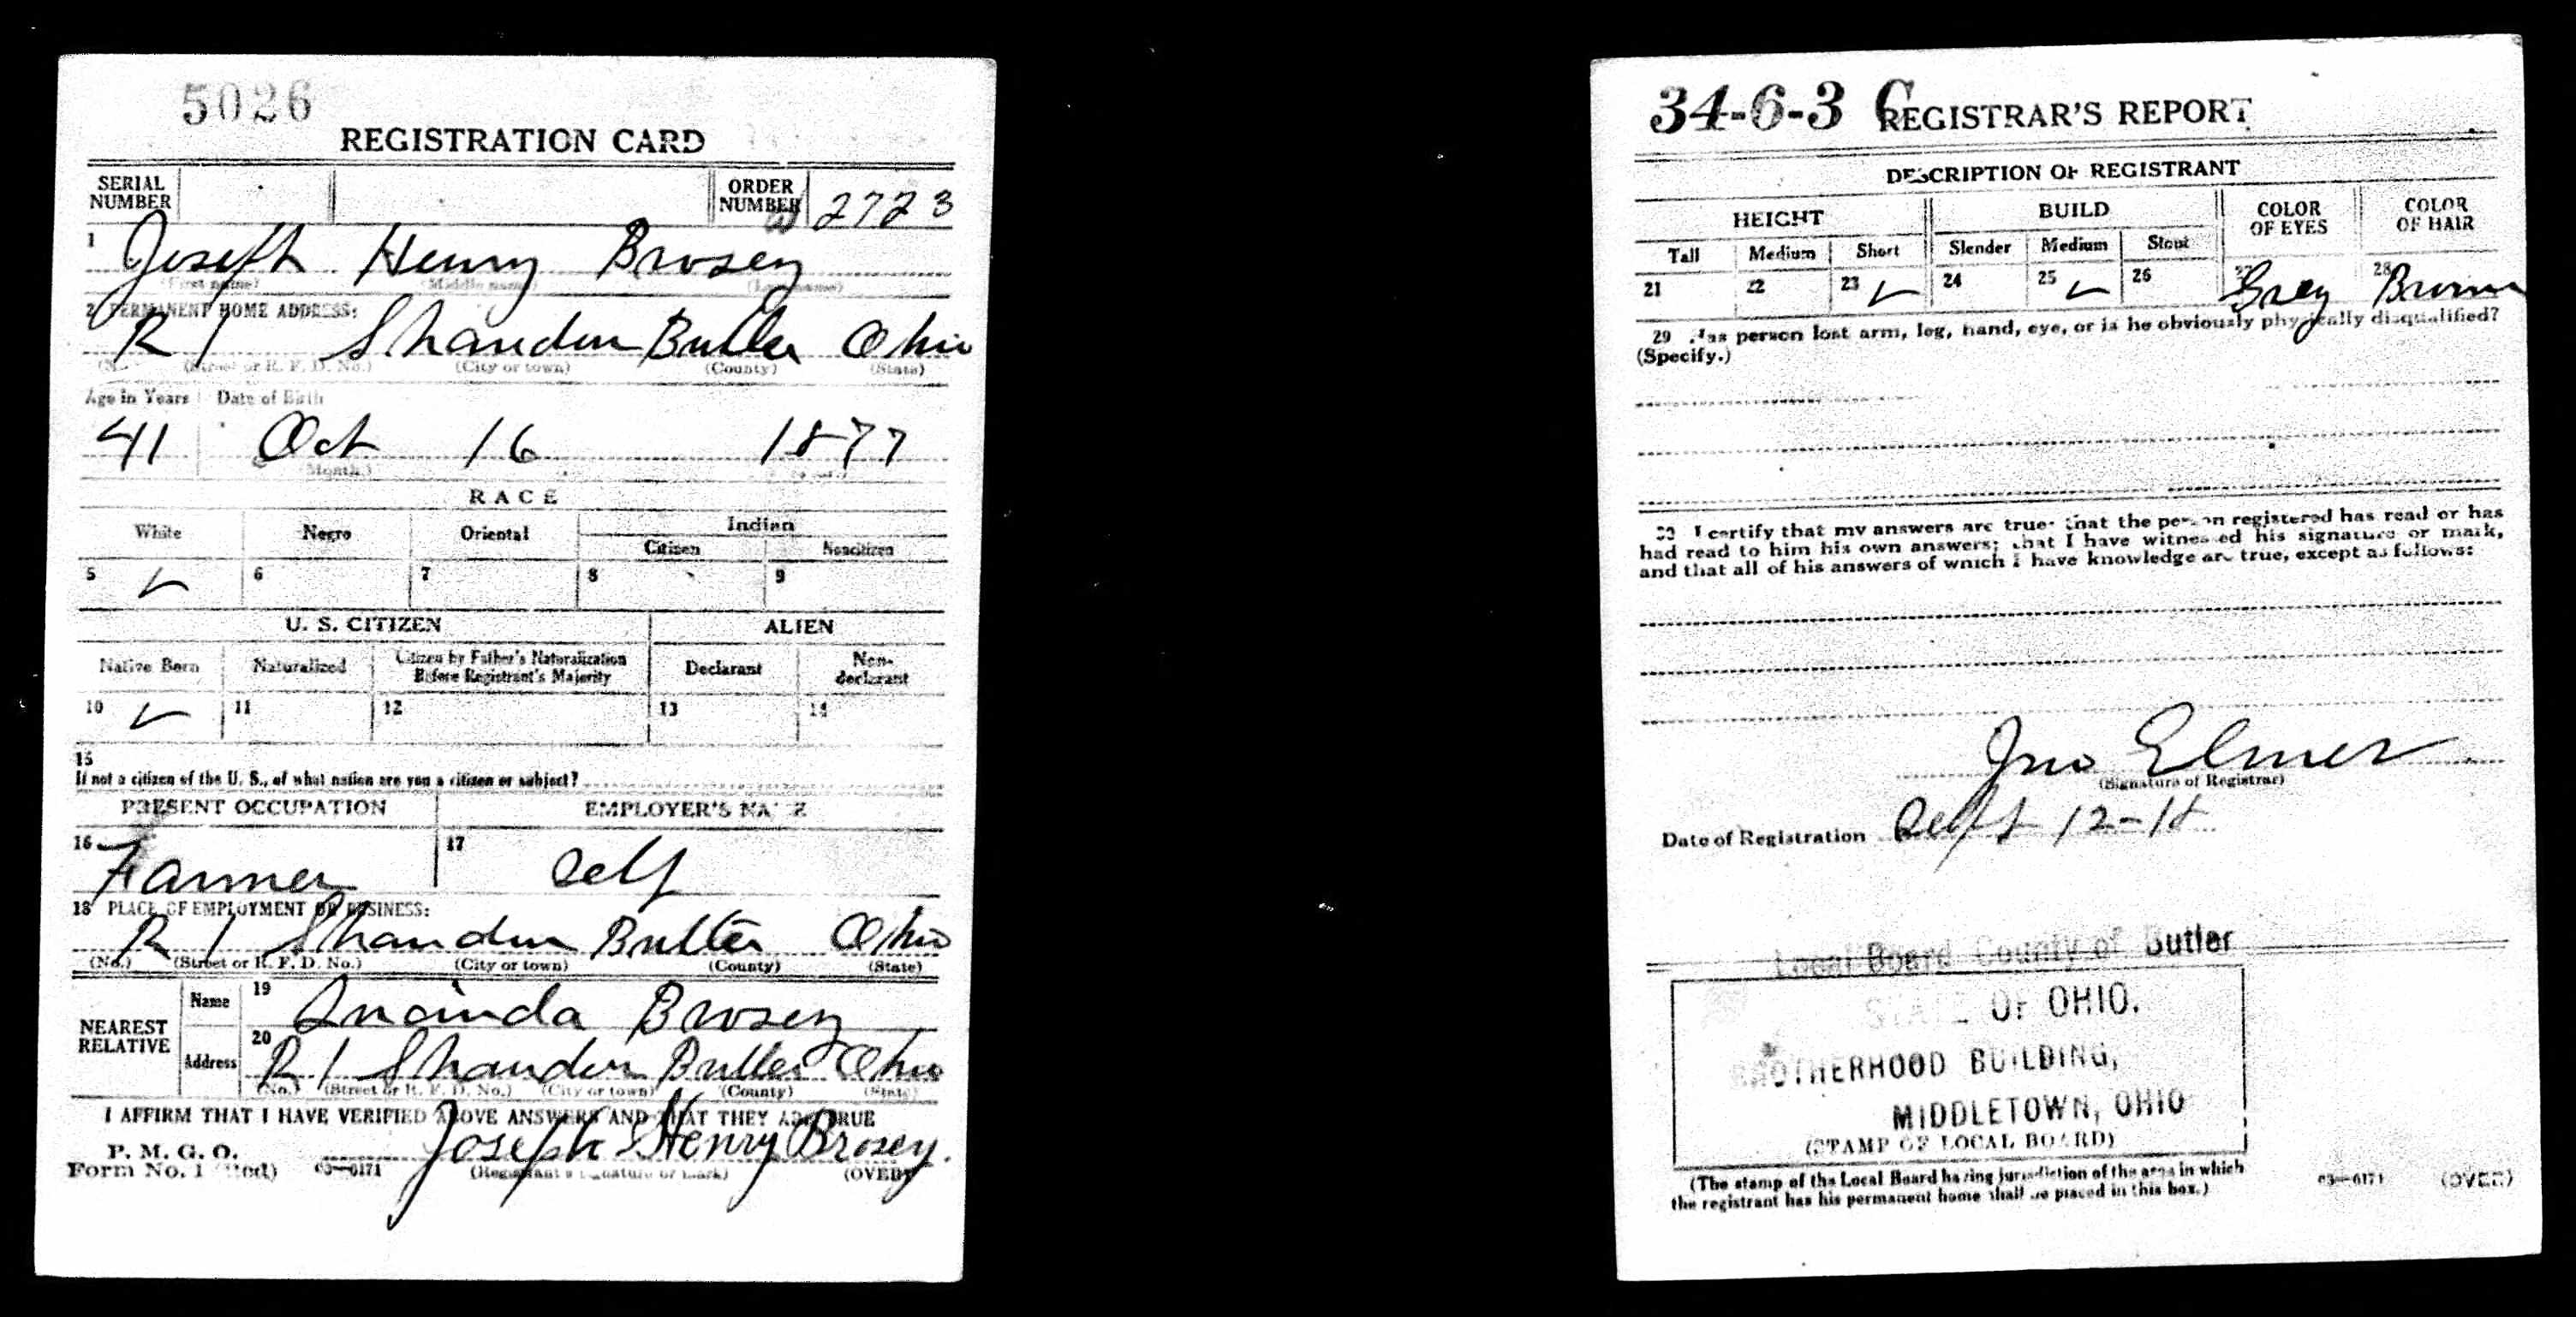 5026
REGISTRATION CARD
SERIAL NUMBER ORDER NUMBER 2723
1 Joseph Henry Brosey
(First name) (Middle name) (Last name)
2 PERMANENT HOME ADDRESS:
R 1 Shandon Butler Ohio
(No.) (Street or R. F. D. No.) (City or town) (County) (State)
Age in Years Date of Birth
41 Oct 16 1877
(Month.)
RACE
White Negro Oriental Indian
Citizen Noncitizen
5 ✓ 6 7 8 9
U. S. CITIZEN ALIEN
Native Born Naturalized Citizen by Father's Naturalization Before Registrant's Majority Declarant Non-declarant
10 ✓ 11 12 13 14
15
If not a citizen of the U. S., of what nation are you a citizen or subject?
PRESENT OCCUPATION EMPLOYER'S NAME
16 Farmer 17 Self
18 PLACE OF EMPLOYMENT OR BUSINESS:
R 1 Shandon Butler Ohio
(No.) (Street or R. F. D. No.) (City or town) (County) (State)
NEAREST RELATIVE Name 19 Brosey
Address 20 R 1 Shandon Butler Ohio
(No.) (Street or R. F. D. No.) (City or town) (County) (State)
I AFFIRM THAT I HAVE VERIFIED ABOVE ANSWERS AND THAT THEY ARE TRUE
P. M. G. O.
Form No. 1 (Red) 03—6171 Joseph Henry Brosey.
(Registrant's signature or mark) (OVER)
34-6-3 C REGISTRAR'S REPORT
DESCRIPTION OF REGISTRANT
HEIGHT BUILD COLOR OF EYES COLOR OF HAIR
Tall Medium Short Slender Medium Stout
21 22 23 ✓ 24 25 ✓ 26 27 Grey 28 Brown
29 Has person lost arm, leg, hand, eye, or is he obviously physically disqualified?
(Specify.)
30 I certify that my answers are true; that the person registered has read or has
had read to him his own answers; that I have witnessed his signature or mark,
and that all of his answers of which I have knowledge are true, except as follows:
Jno Elmer
(Signature of Registrar)
Date of Registration Sept 12-18
Local Board County of Butler
STATE OF OHIO.
BROTHERHOOD BUILDING,
MIDDLETOWN, OHIO
(STAMP OF LOCAL BOARD)
(The stamp of the Local Board having jurisdiction of the area in which
the registrant has his permanent home shall be placed in this box.)
03—6171 (OVER)